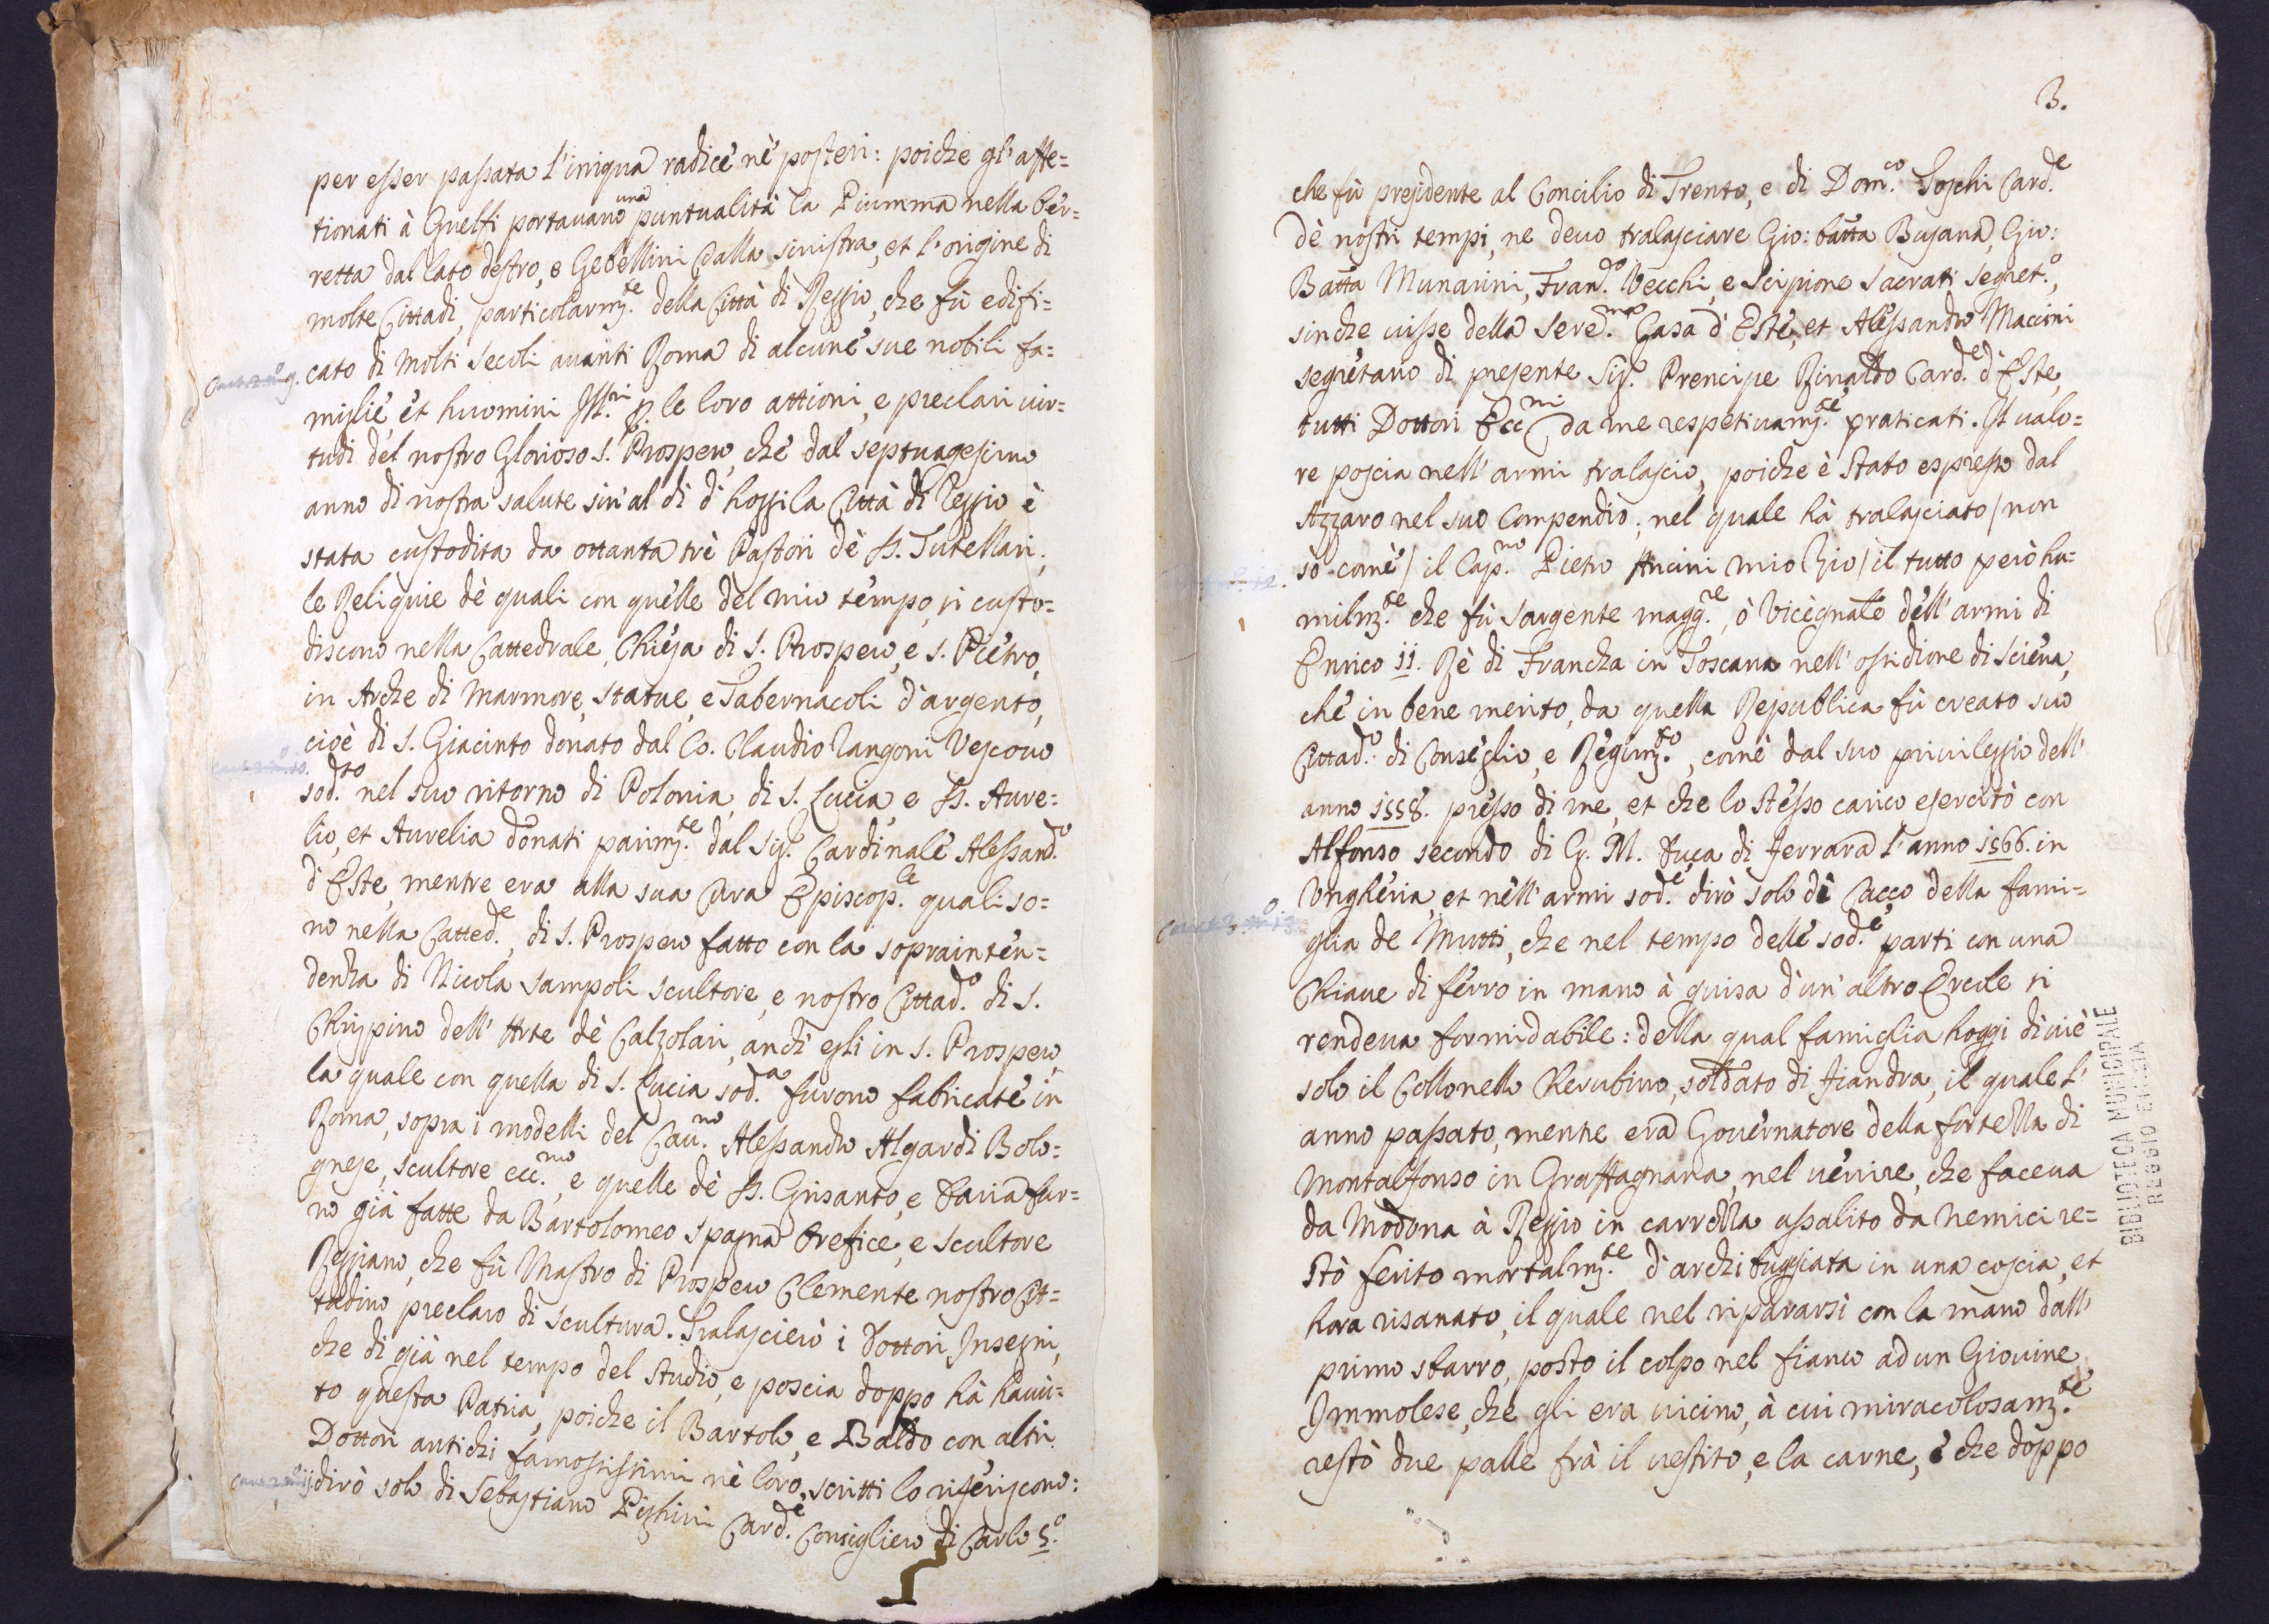 per esser passata l'iniqua radice nè posteri: poiche gl'affe=
tionati à Guelfi portauano una puntualità la Piumma nella ber=
retta dal lato destro, e Gebellini dalla sinistra, et l'origine di
molte Cittadi, particolarm.te della Città di Reggio, che fù edifi=
cato di molti secoli auanti Roma di alcune sue nobili fa=
miglie, et huomini Ill.ri p. le loro attioni, e preclari uir=
tudi del nostro Glorioso S. Prospero, che dal septuagesimo
anno di nostra salute sin'al dì d'hoggi la Città di Reggio è
stata custodita da ottanta trè Pastori dè SS. Tutellari,
le Reliquie dè quali con quelle del mio tempo, si custo=
discono nella Cattedrale, Chiesa di S. Prospero, e S. Pietro,
in Arche di Marmore, statue, e Tabernacoli d'argento,
cioè di S. Giacinto donato dal Co. Claudio Rangoni Vescouo
sod.to nel suo ritorno di Polonia, di S. Lucia, e SS. Aure=
lio, et Aurelia donati parim.te dal Sig. Cardinale Alessand.o
d'Este, mentre era alla sua Cura Episcop.le quali so=
no nella Catted.e, di S. Prospero fatto con la soprainten=
denza di Nicola Sampoli scultore, e nostro Cittad.o di S.
Chrispino dell'Arte dè Calzolari, anch'egli in S. Prospero,
la quale con quella di S. Lucia sod.a furono fabricate in
Roma, sopra i modelli del Cau.no Alessandro Algardi Bolo=
gnese, scultore ecc.mo, e quelle dè SS. Grisanto, e Daria fur=
no già fatte da Bartolomeo Spagna Orefice, e scultore
Reggiano, che fù Mastro di Prospero Clemente nostro Cit=
tadino preclaro di scultura. Tralascierò i Dottori Insegni,
che di già nel tempo del studio, e poscia doppo hà hauu=
to questa Patria, poiche il Bartolo, e Baldo con altri
Dottori antichi famosissimi nè loro scritti lo riferiscono:
dirò solo di Sebastiano Pighini Card.e Consigliero di Carlo 5.o
3.
che fù presidente al Concilio di Trento, e di Dom.co Toschi Card.e
dè nostri tempi, ne deuo tralasciare Gio: batta Busana, Gio:
Batta Munarini, Fran.do Vecchi, e Scipione Sacrati segret.o,
sinche uisse della Sere.ma Casa d'Este, et Alessandro Maccini
segretario di presente Sig. Prencipe Rinaldo Card.e d'Este,
tutti Dottori Ecc.mi da me respetiuam.te praticati. Il ualo=
re poscia nell'armi tralascio, poiche è stato espresso dal
Azzaro nel suo Compendio, nel quale hà tralasciato / non
sò come / il Cap.no Pietro Ancini mio Zio / il tutto però hu=
milm.te che fù Sargente magg.re, ò Vicegnale dell'armi di
Enrico ij. Rè di Francza in Toscana nell'ossidione di Sciena,
che in bene merito, da quella Republica fù creato suo
Cittad.o di Conseglio, e Regim.to, come dal suo priuileggio dell'
anno 1558. presso di me, et che lo stesso carico esercitò con
Alfonso secondo di G. M. Duca di Ferrara l'anno 1566. in
Ungheria, et nell'armi sod.e dirò solo di Cacço della fami=
glia de Mutti, che nel tempo delle sod.e parti con una
Chiaue di ferro in mano à guisa d'un'altro Ercole si
rendeua formidabile: della qual famiglia hoggi di uiè
solo il Collonello Cherubino, soldato di Fiandra, il quale l'
anno passato, mentre era Gouernatore della fortezza di
Montalfonso in Graffagnana, nel uenire, che faceua
da Modona à Reggio in carrozza assalito da nemici re=
stò ferito mortalm.te d'archibuggiata in una coscia, et
hora risanato, il quale nel ripararsi con la mano dall'
primo sbarro, postò il colpo nel fianco ad un Giouine
Immolese, che gli era uicino, à cui miracolosam.te
restò due palle frà il uestito, e la carne, è che doppo
BIBLIOTECA MUNICIPALE
REGGIO EMILIA